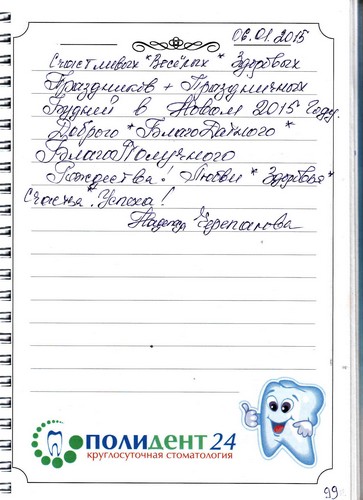 06.01.2015
Счастливых * Весёлых * Здоровых
Праздников + Праздничных
Будней в Новом 2015 Году.
Доброго * БлагоДатного *
БлагоПолучного
Рождества! Любви * Здоровья *
Счастья * Успеха!
Надежда Черепанова
ПОЛИДЕНТ 24
круглосуточная стоматология
99